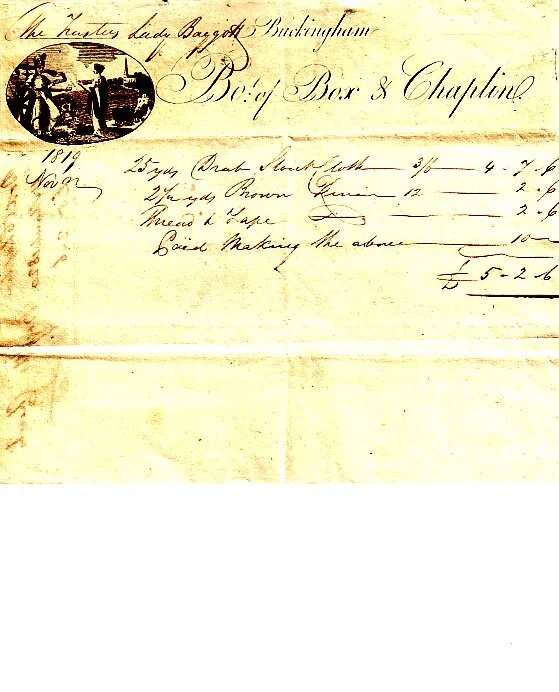 The Trustees Lady Baggott Buckingham
Bo.t of Box & Chaplin
1819
Nov 25 yds Drab Stout Cloth 3/6 4-7-6
2½ yds Brown 12 2-6
Thread & Tape 2-6
Paid Making the above 10-
£5-2-6